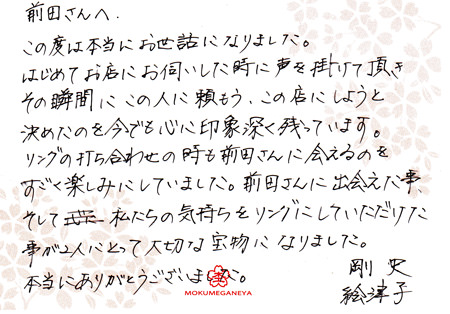 前田さんへ.
この度は本当にお世話になりました。
はじめてお店にお伺いした時に声を掛けて頂き
その瞬間にこの人に頼もう、この店にしようと
決めたのを今でも心に印象深く残っています。
リングの打ち合わせの時も前田さんに会えるのを
すごく楽しみにしていました。前田さんに出会えた事、
そして 私たちの気持ちをリングにしていただけた
事が2人にとって大切な宝物になりました。
本当にありがとうございました。
MOKUMEGANEYA
剛史
絵津子